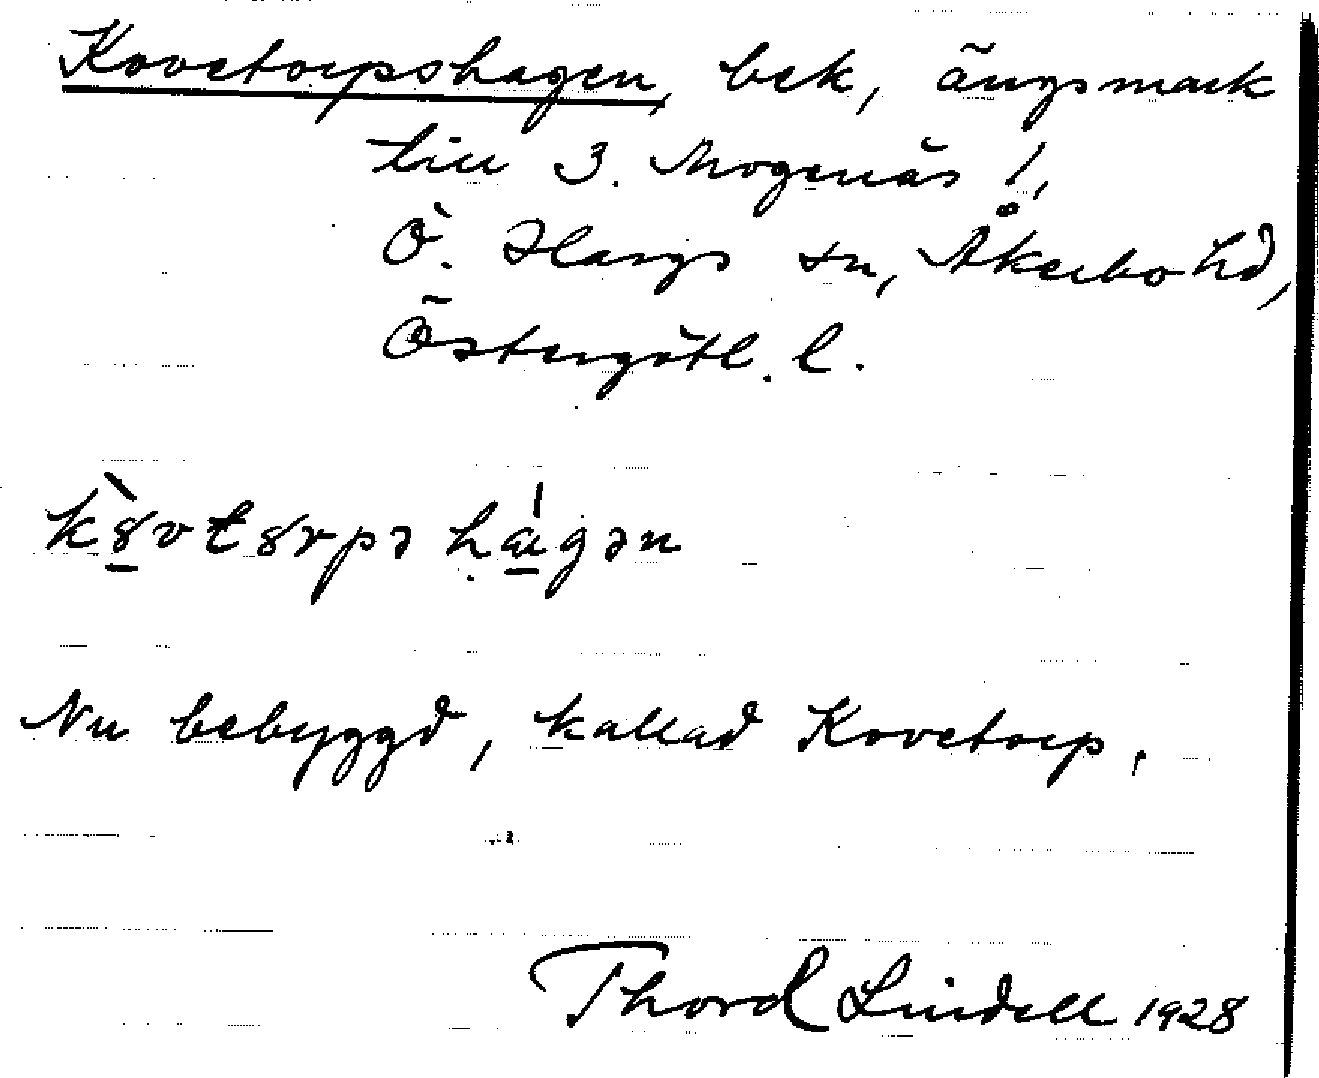 Kovetorpshagen, bek, ängsmark
till 3. Mogenäs !,
Ö. Hargs sn, Åkerbo hd,
Östergötl. l.
Nu bebyggd, kallad Kovetorp.
Thord Lindell 1928